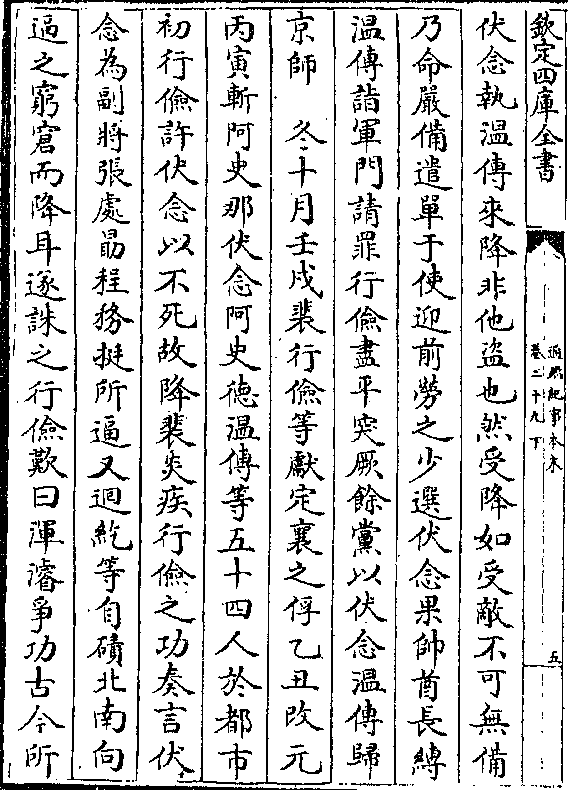 欽定四庫全書
通鑑紀事本末
卷二十九下
五
伏念執溫傳來降非他盜也然受降如受敵不可無備
乃命嚴備遣單于使迎前勞之少選伏念果帥酋長縛
溫傳詣軍門請罪行儉盡平突厥餘黨以伏念溫傳歸
京師　冬十月壬戌裴行儉等獻定襄之俘乙丑改元
丙寅斬阿史那伏念阿史德溫傳等五十四人於都市
初行儉許伏念以不死故降裴炎疾行儉之功奏言伏
念為副將張虔勗程務挺所逼又迴紇等自磧北南向
逼之窮窘而降耳遂誅之行儉歎曰渾濬爭功古今所